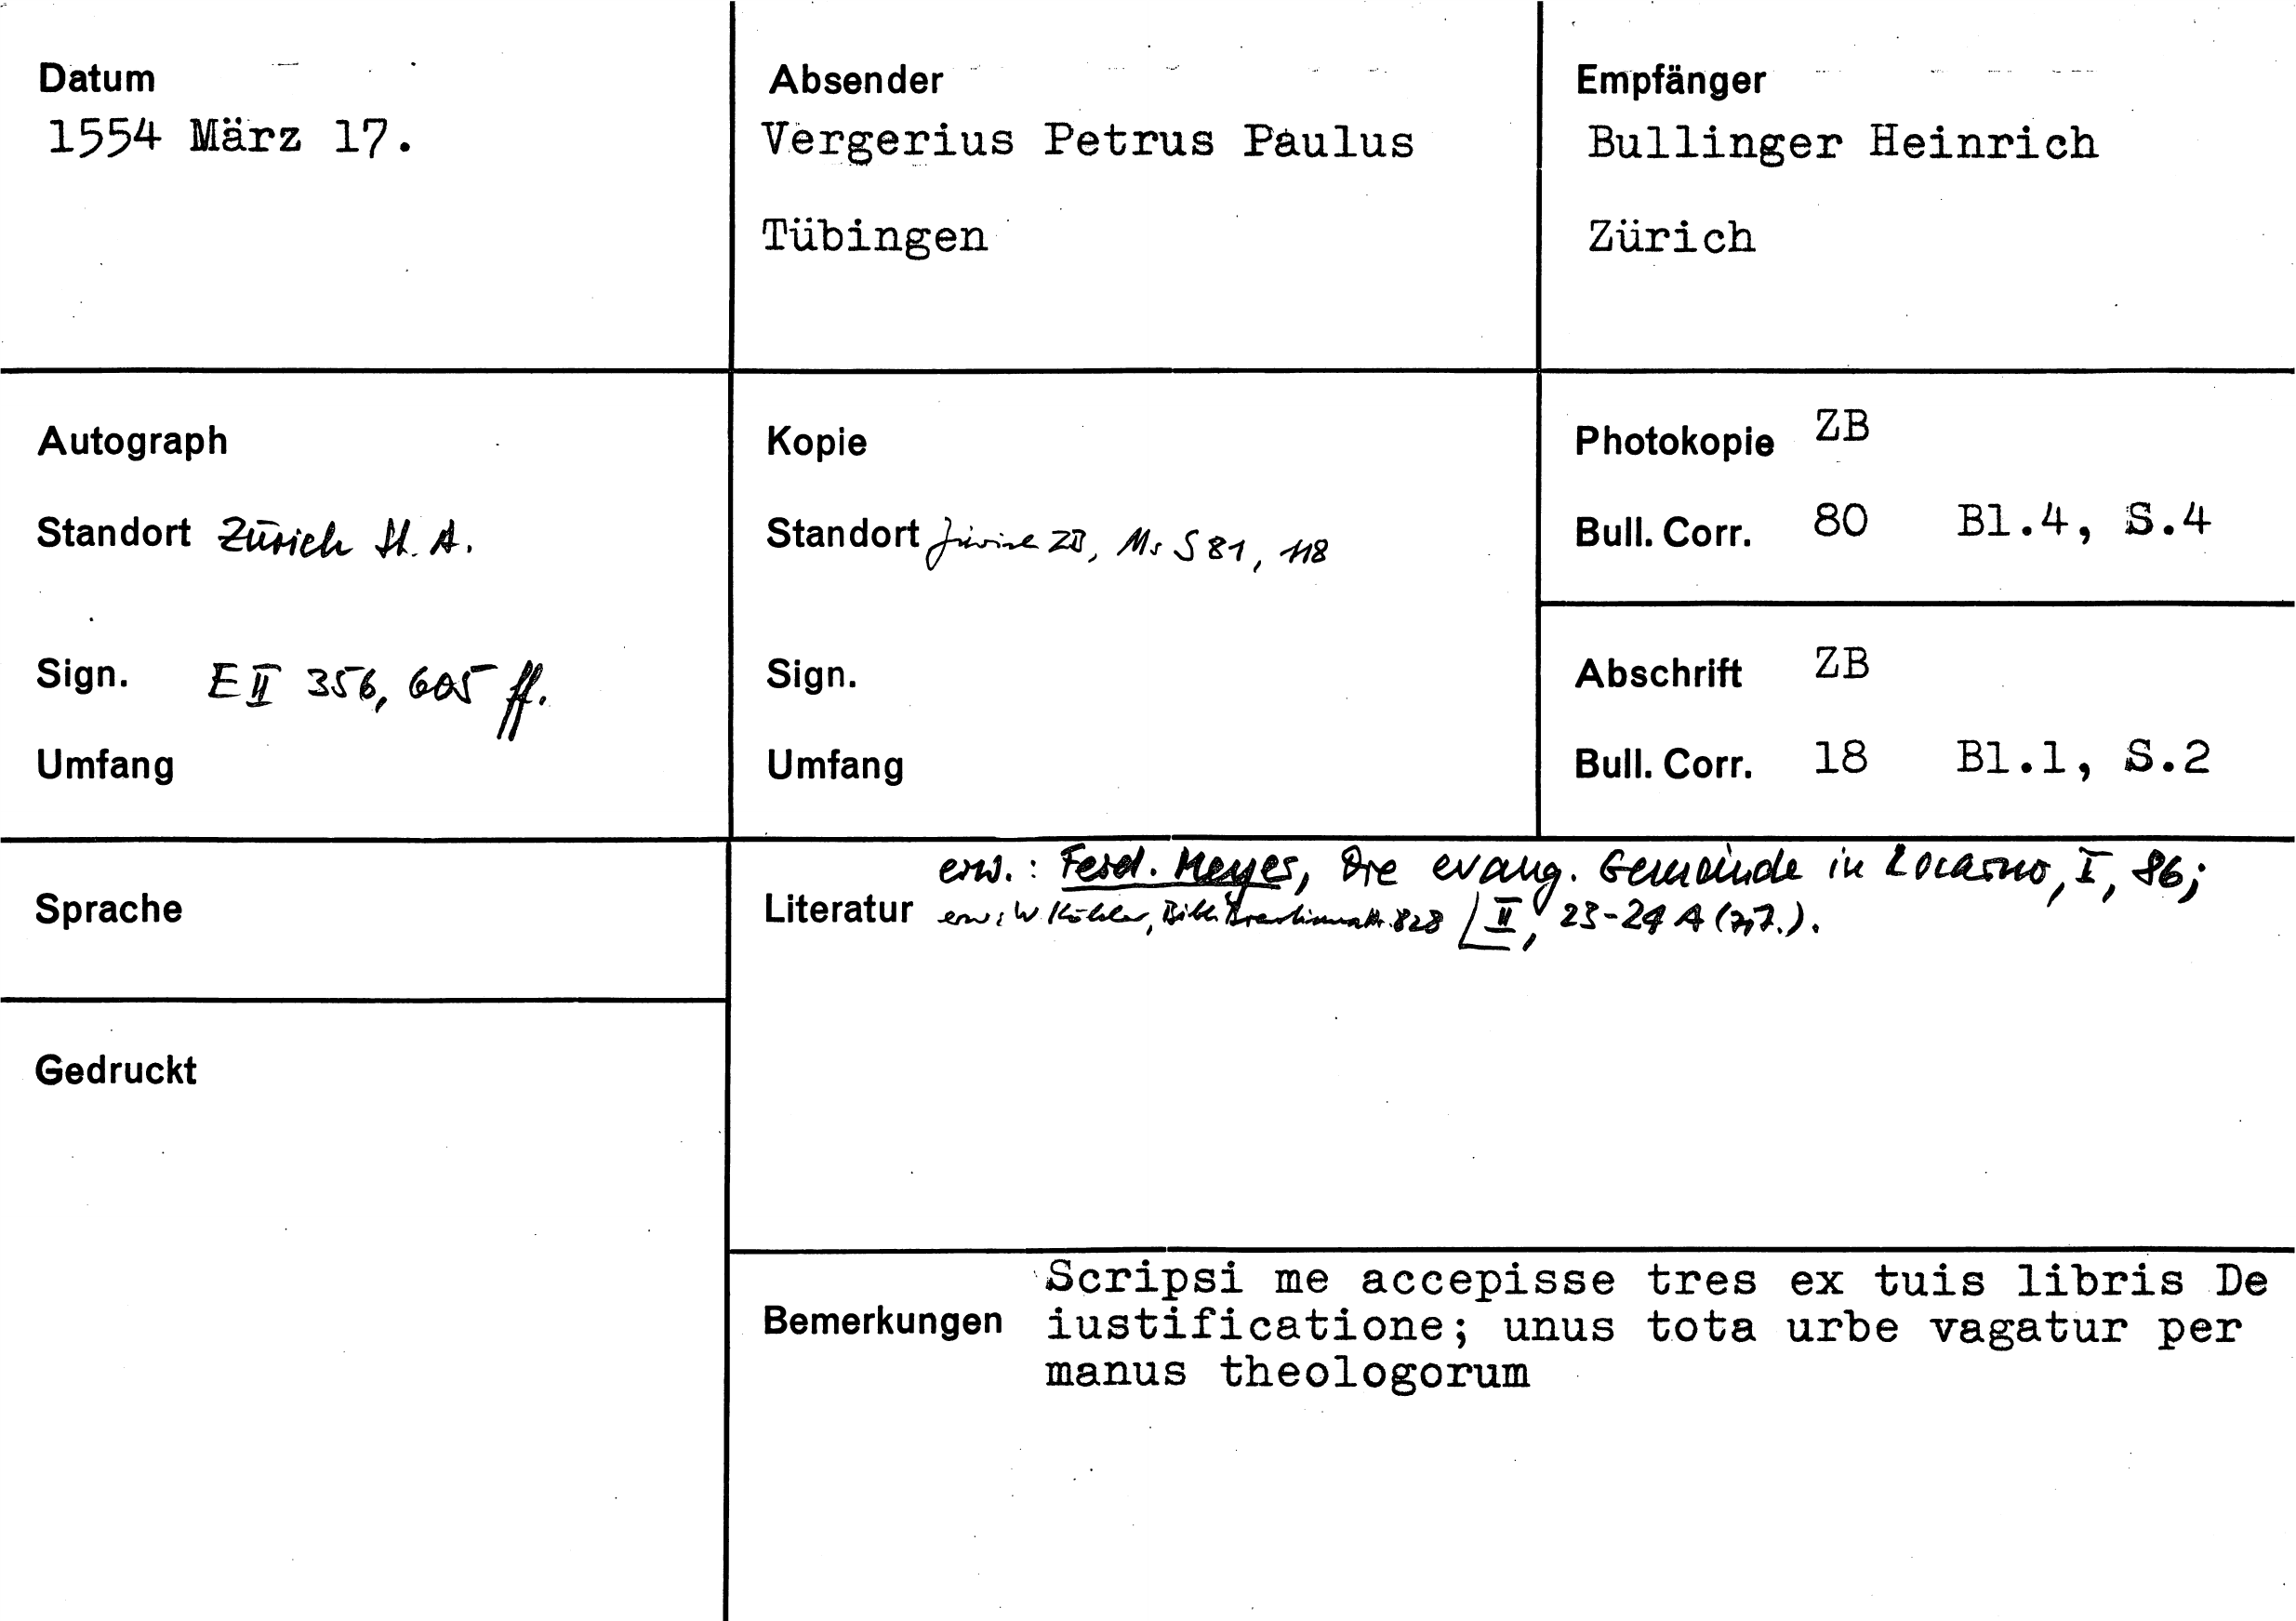 Datum
1554 März 17.
Absender
Vergerius Petrus Paulus
Tübingen
Empfänger
Bullinger Heinrich
Zürich
Autograph
Standort Zürich St. A.
Sign. E II 356, 605 ff.
Umfang
Kopie
Standort Zürich ZB, Ms S 81, 118
Sign.
Umfang
Photokopie ZB
Bull. Corr. 80 Bl.4, S.4
Abschrift ZB
Bull. Corr. 18 Bl.1, S.2
Sprache
Gedruckt
erw.: Ferd. Meyer, Die evang. Gemeinde in Locarno, I, 86;
Literatur erw: W. Köhler, Bibl. Brentiana Nr. 828 II, 23-24 A
Scripsi me accepisse tres ex tuis libris De
Bemerkungen iustificatione; unus tota urbe vagatur per
manus theologorum